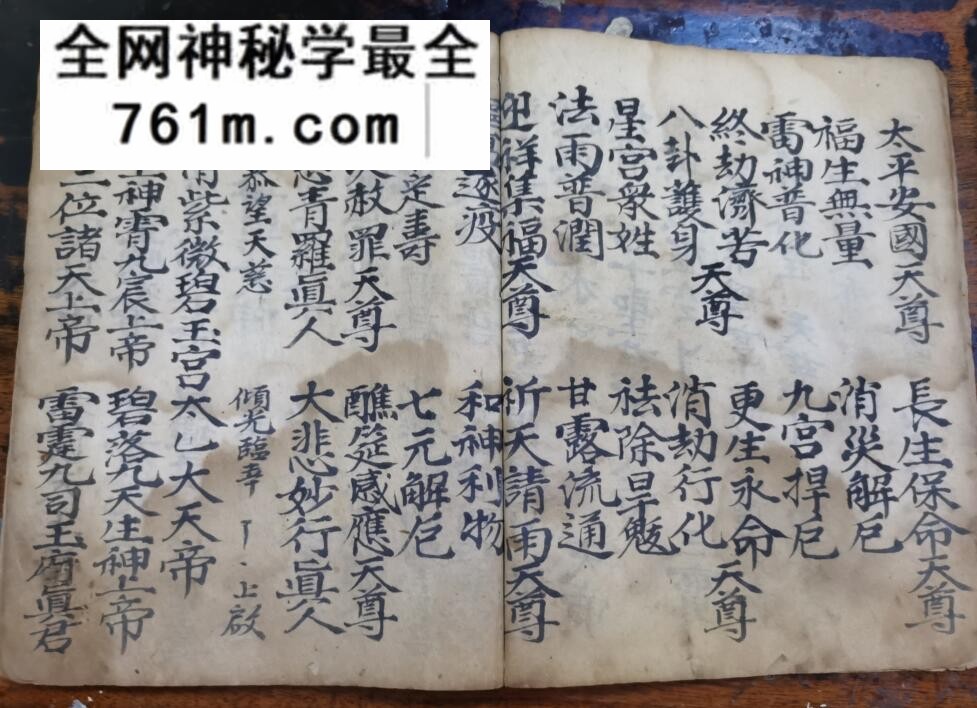 全网神秘学最全
761m.com
太平安國天尊 長生保命天尊
福生無量 消災解厄
雷神普化 九宮捍厄
終劫濟苦天尊 更生永命天尊
八卦護身 消劫行化
星宮衆姓 祛除旱魃
法雨普潤 甘露流通
迎祥集福天尊 祈天請雨天尊
逐疫 和神利物
定壽 七元解厄
赦罪天尊 醮筵感應天尊
青羅眞人 大悲妙行眞人
恭望天慈 傾光臨幸 上啟
紫微碧玉宮太乙大天帝
神霄九宸上帝 碧落九天生神上帝
位諸天上帝 雷霆九司玉府眞君